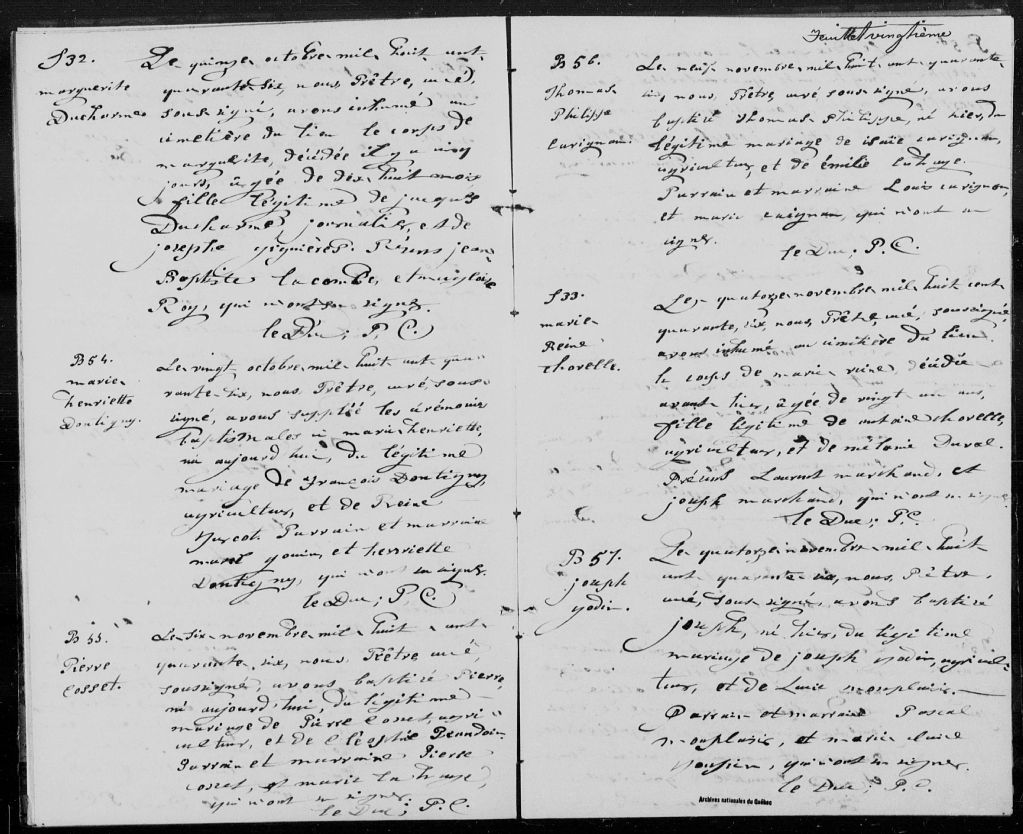 S 32.
marguerite
Ducharme
Le quinze octobre mil huit cent
quarante six, nous Prêtre, curé
soussigné, avons inhumé au
cimetière du lieu le corps de
marguerite, décédée il y a cinq
jours, âgée de dix huit mois
fille légitime de jacques
Ducharme, journalier, et de
josephe. Présens jean
Baptiste lacombe, et
Roy, qui n'ont su signer.
le Duc; P. C.
B 54.
marie
henriette
Dontigny.
Le vingt octobre mil huit cent qua
rante six, nous Prêtre, curé sous
signé, avons suppléé les cérémonies
baptismales à marie henriette,
née aujourd'hui, du légitime
mariage de françois Dontigny
agriculteur, et de Reine
Turcot. Parrain et marraine
et henriette
Dontigny, qui n'ont su signer.
le Duc; P. C.
B 55.
Pierre
Cosset.
Le six novembre mil huit cent
quarante six, nous Prêtre curé,
soussigné, avons baptisé Pierre,
né aujourd'hui, du légitime
mariage de Pierre Cosset, agri
culteur, et de Beaudoin
Parrain et marraine Pierre
Cosset, et marie
qui n'ont su signer
le Duc; P. C.
feuillet vingtième
B 56.
Thomas
Philippe
Carignan.
Le neuf novembre mil huit cent quarante
six, nous Prêtre, curé soussigné, avons
baptisé Thomas Philippe, né hier, du
légitime mariage de isaïe Carignan,
agriculteur, et de émilie
Parrain et marraine Louis Carignan,
et marie Carignan, qui n'ont su
signer.
le Duc; P. C.
S 33.
marie
Reine
Chorelle.
Le quatorze novembre mil huit cent
quarante, six, nous, Prêtre, curé, soussigné,
avons inhumé au cimetière du lieu
le corps de marie reine décédée
avant hier, âgée de vingt un ans,
fille légitime de antoine Chorelle,
agriculteur, et de mélanie Duval.
Présens Laurent marchand, et
joseph marchand, qui n'ont su signer
le Duc; P. C.
B 57.
joseph
godin.
Le quatorze novembre mil huit
cent quarante six, nous, Prêtre,
curé, soussigné, avons baptisé
joseph, né hier, du légitime
mariage de joseph godin, agricul
teur, et de Lucie monplaisir.
Parrain et marraine Pascal
monplaisir, et marie
qui n'ont su signer.
le Duc; P. C.
Archives nationales du Québec